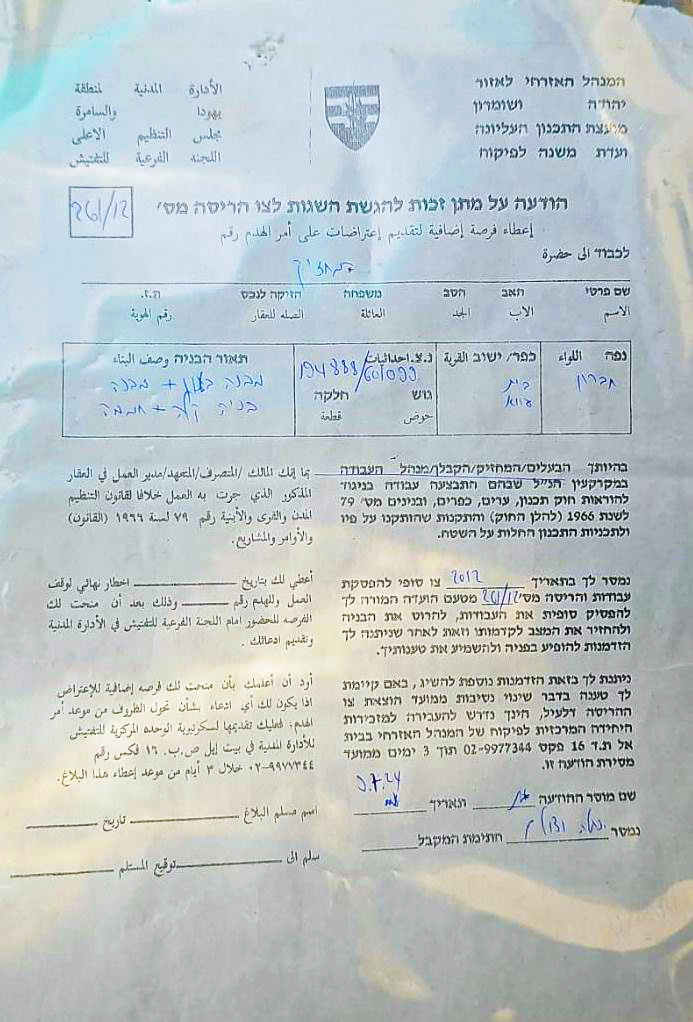 המנהל האזרחי לאזור
יהודה ושומרון
מועצת התכנון העליונה
ועדת משנה לפיקוח
الأدارة المدنية لمنطقة
يهودا والسامرة
مجلس التنظيم الاعلى
اللجنه الفرعية للتفتيش
הודעה על מתן זכות להגשת השגות לצו הריסה מס׳
261/12
إعطاء فرصة إضافية لتقديم إعتراضات على أمر الهدم رقم
לכבוד الى حضرة
המחזיק
שם פרטי האב הסב משפחה הזיקה לנכס ת.ז.
الاسم الاب الجد العائلة الصله للعقار رقم الهوية
נפה اللواء
חברון
כפר/ ישוב القرية
בית
עווא
נ.צ. احداثيات
גוש חלקה
حوض قطعة
תאור הבניה وصف البناء
מבנה
בניה קלה + חממה
בהיותך הבעלים/המחזיק/הקבלן/מנהל העבודה
במקרקעין הנ״ל שבהם התבצעה עבודה בניגוד
להוראות חוק תכנון, ערים, כפרים, ובנינים מס׳ 79
לשנת 1966 (להלן החוק) והתקנות שהותקנו על פיו
ולתכניות התכנון החלות על השטח.
بما إنك المالك /المتصرف/المتعهد/مدير العمل في العقار
المذكور الذي جرت به العمل خلافا لقانون التنظيم
المدن والقرى والأبنية رقم ٧٩ لسنة ١٩٦٦ (القانون)
والأوامر والمشاريع.
נמסר לך בתאריך 2012 צו סופי להפסקת
עבודות והריסה מס׳ 261/12 מטעם הועדה המורה לך
להפסיק סופית את העבודות, להרוס את הבניה
ולהחזיר את המצב לקדמותו וזאת לאחר שניתנה לך
הזדמנות להופיע בפניה ולהשמיע את טענותיך.
أعطي لك بتاريخ ــــــــ اخطار نهائي لوقف
العمل وللهدم رقم ــــــــ وذلك بعد أن منحت لك
الفرصه للحضور امام اللجنة الفرعية للتفتيش في الأدارة المدنية
وتقديم ادعائك .
ניתנת לך בזאת הזדמנות נוספת להשיג, באם קיימת
לך טענה בדבר שינוי נסיבות ממועד הוצאת צו
ההריסה דלעיל, הינך נדרש להעבירה למזכירות
היחידה המרכזית לפיקוח של המנהל האזרחי בבית
אל ת.ד 16 פקס 02-9977344 תוך 3 ימים ממועד
מסירת הודעה זו.
أود أن أعلمك بأن منحت لك فرصه إضافية للإعتراض
اذا يكون لك أي ادعاء بشأن تحول الظروف من موعد أمر
الهدم، فعليك تقديمها لسكرتيرية الوحده المركزية للتفتيش
للأدارة المدنية في بيت إيل ص.ب. ١٦ فكس رقم
٠٢-٩٩٧٧٣٤٤ خلال ٣ أيام من موعد إعطاء هذا البلاغ.
שם מוסר ההודעה ותאריך
נמסר חתימת המקבל
اسم مسلم البلاغ ــــــــ تاريخ ــــــــ
سلم الى ــــــــ توقيع المستلم ــــــــ